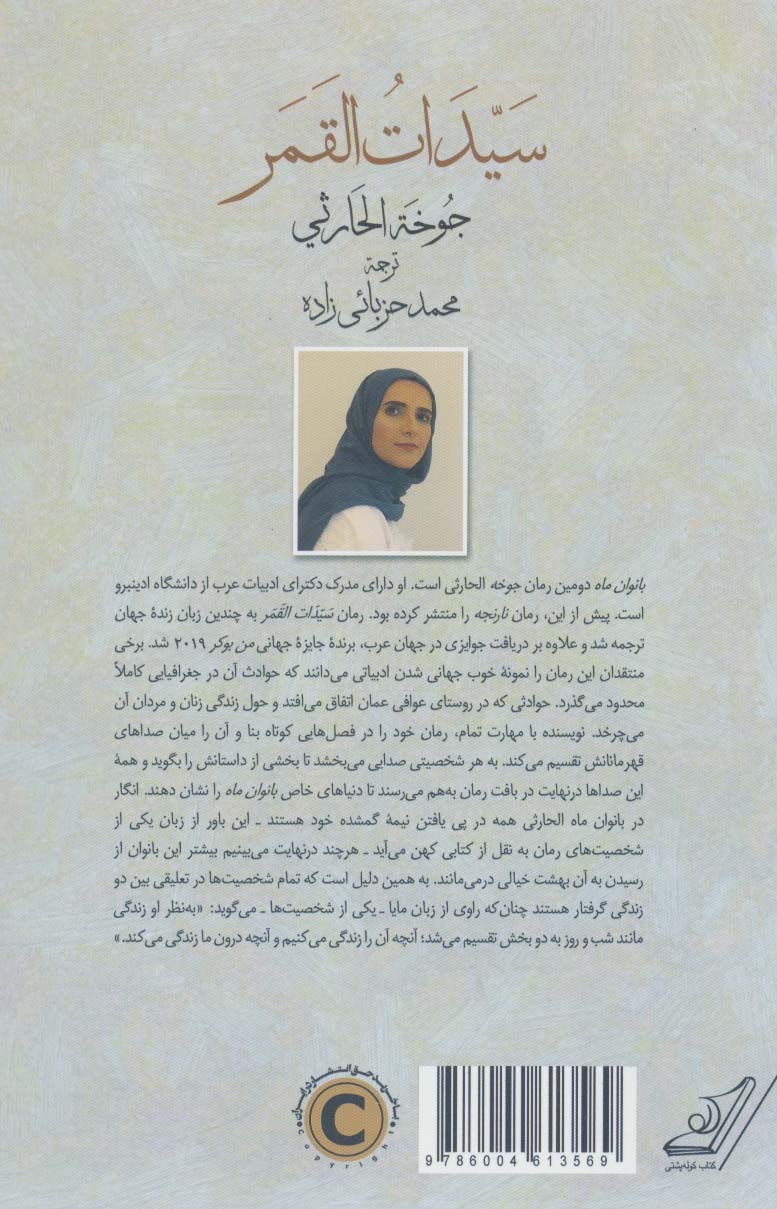 سَيِّدَاتُ القَمَر
جُوخَة الحَارثي
ترجمة
محمد حزبائی زاده
بانوان ماه دومین رمان جوخه الحارثی است. او دارای مدرک دکترای ادبیات عرب از دانشگاه ادینبرو
است. پیش از این، رمان نارنجه را منتشر کرده بود. رمان سَیّدات القَمَر به چندین زبان زندهٔ جهان
ترجمه شد و علاوه بر دریافت جوایزی در جهان عرب، برندهٔ جایزهٔ جهانی من بوکر ۲۰۱۹ شد. برخی
منتقدان این رمان را نمونهٔ خوب جهانی شدن ادبیاتی می‌دانند که حوادث آن در جغرافیایی کاملاً
محدود می‌گذرد. حوادثی که در روستای عوافی عمان اتفاق می‌افتد و حول زندگی زنان و مردان آن
می‌چرخد. نویسنده با مهارت تمام، رمان خود را در فصل‌هایی کوتاه بنا و آن را میان صداهای
قهرمانانش تقسیم می‌کند. به هر شخصیتی صدایی می‌بخشد تا بخشی از داستانش را بگوید و همهٔ
این صداها درنهایت در بافت رمان به‌هم می‌رسند تا دنیاهای خاص بانوان ماه را نشان دهند. انگار
در بانوان ماه الحارثی همه در پی یافتن نیمهٔ گمشده خود هستند ـ این باور از زبان یکی از
شخصیت‌های رمان به نقل از کتابی کهن می‌آید ـ هرچند درنهایت می‌بینیم بیشتر این بانوان از
رسیدن به آن بهشت خیالی درمی‌مانند. به همین دلیل است که تمام شخصیت‌ها در تعلیقی بین دو
زندگی گرفتار هستند چنان‌که راوی از زبان مایا ـ یکی از شخصیت‌ها ـ می‌گوید: «به‌نظر او زندگی
مانند شب و روز به دو بخش تقسیم می‌شد؛ آنچه آن را زندگی می‌کنیم و آنچه درون ما زندگی می‌کند.»
با خرید حق انتشار در ایران
C
copyright
9 786004 613569
کتاب کوله‌پشتی